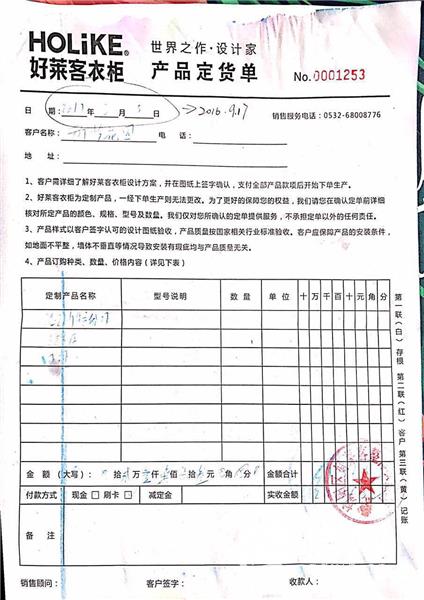 HOLiKE® 世界之作·设计家
好莱客衣柜 产品定货单 No.0001253
日 期： 年 月 日 → 2016.9.17 销售服务电话：0532-68008776
客户名称： 电 话：
地 址：
1、客户需详细了解好莱客衣柜设计方案，并在图纸上签字确认，支付全部产品款项后开始下单生产。
2、好莱客衣柜为定制产品，一经下单生产则无法更改。为了更好的保障您的权益，我们请您在确认定单前详细
核对所定产品的颜色、规格、型号及数量。我们仅对您所确认的定单提供服务，不承担定单以外的任何责任。
3、产品样式以客户签字认可的设计图纸验收，产品质量按国家相关行业标准验收。客户应保障产品的安装条件，
如地面不平整，墙体不垂直等情况导致安装有瑕疵均与产品质量无关。
4、产品订购种类、数量、价格内容（详见下表）
定制产品名称 型号说明 数量 单位 十 万 千 百 十 元 角 分
金 额（大写）： 拾 万 仟 佰 拾 元 角 分 金额合计
付款方式 现金 □ 刷卡 □ 减定金 实收金额
备 注
销售顾问： 客户签字： 收款人：
第一联（白）存根 第二联（红）客户 第三联（黄）记账